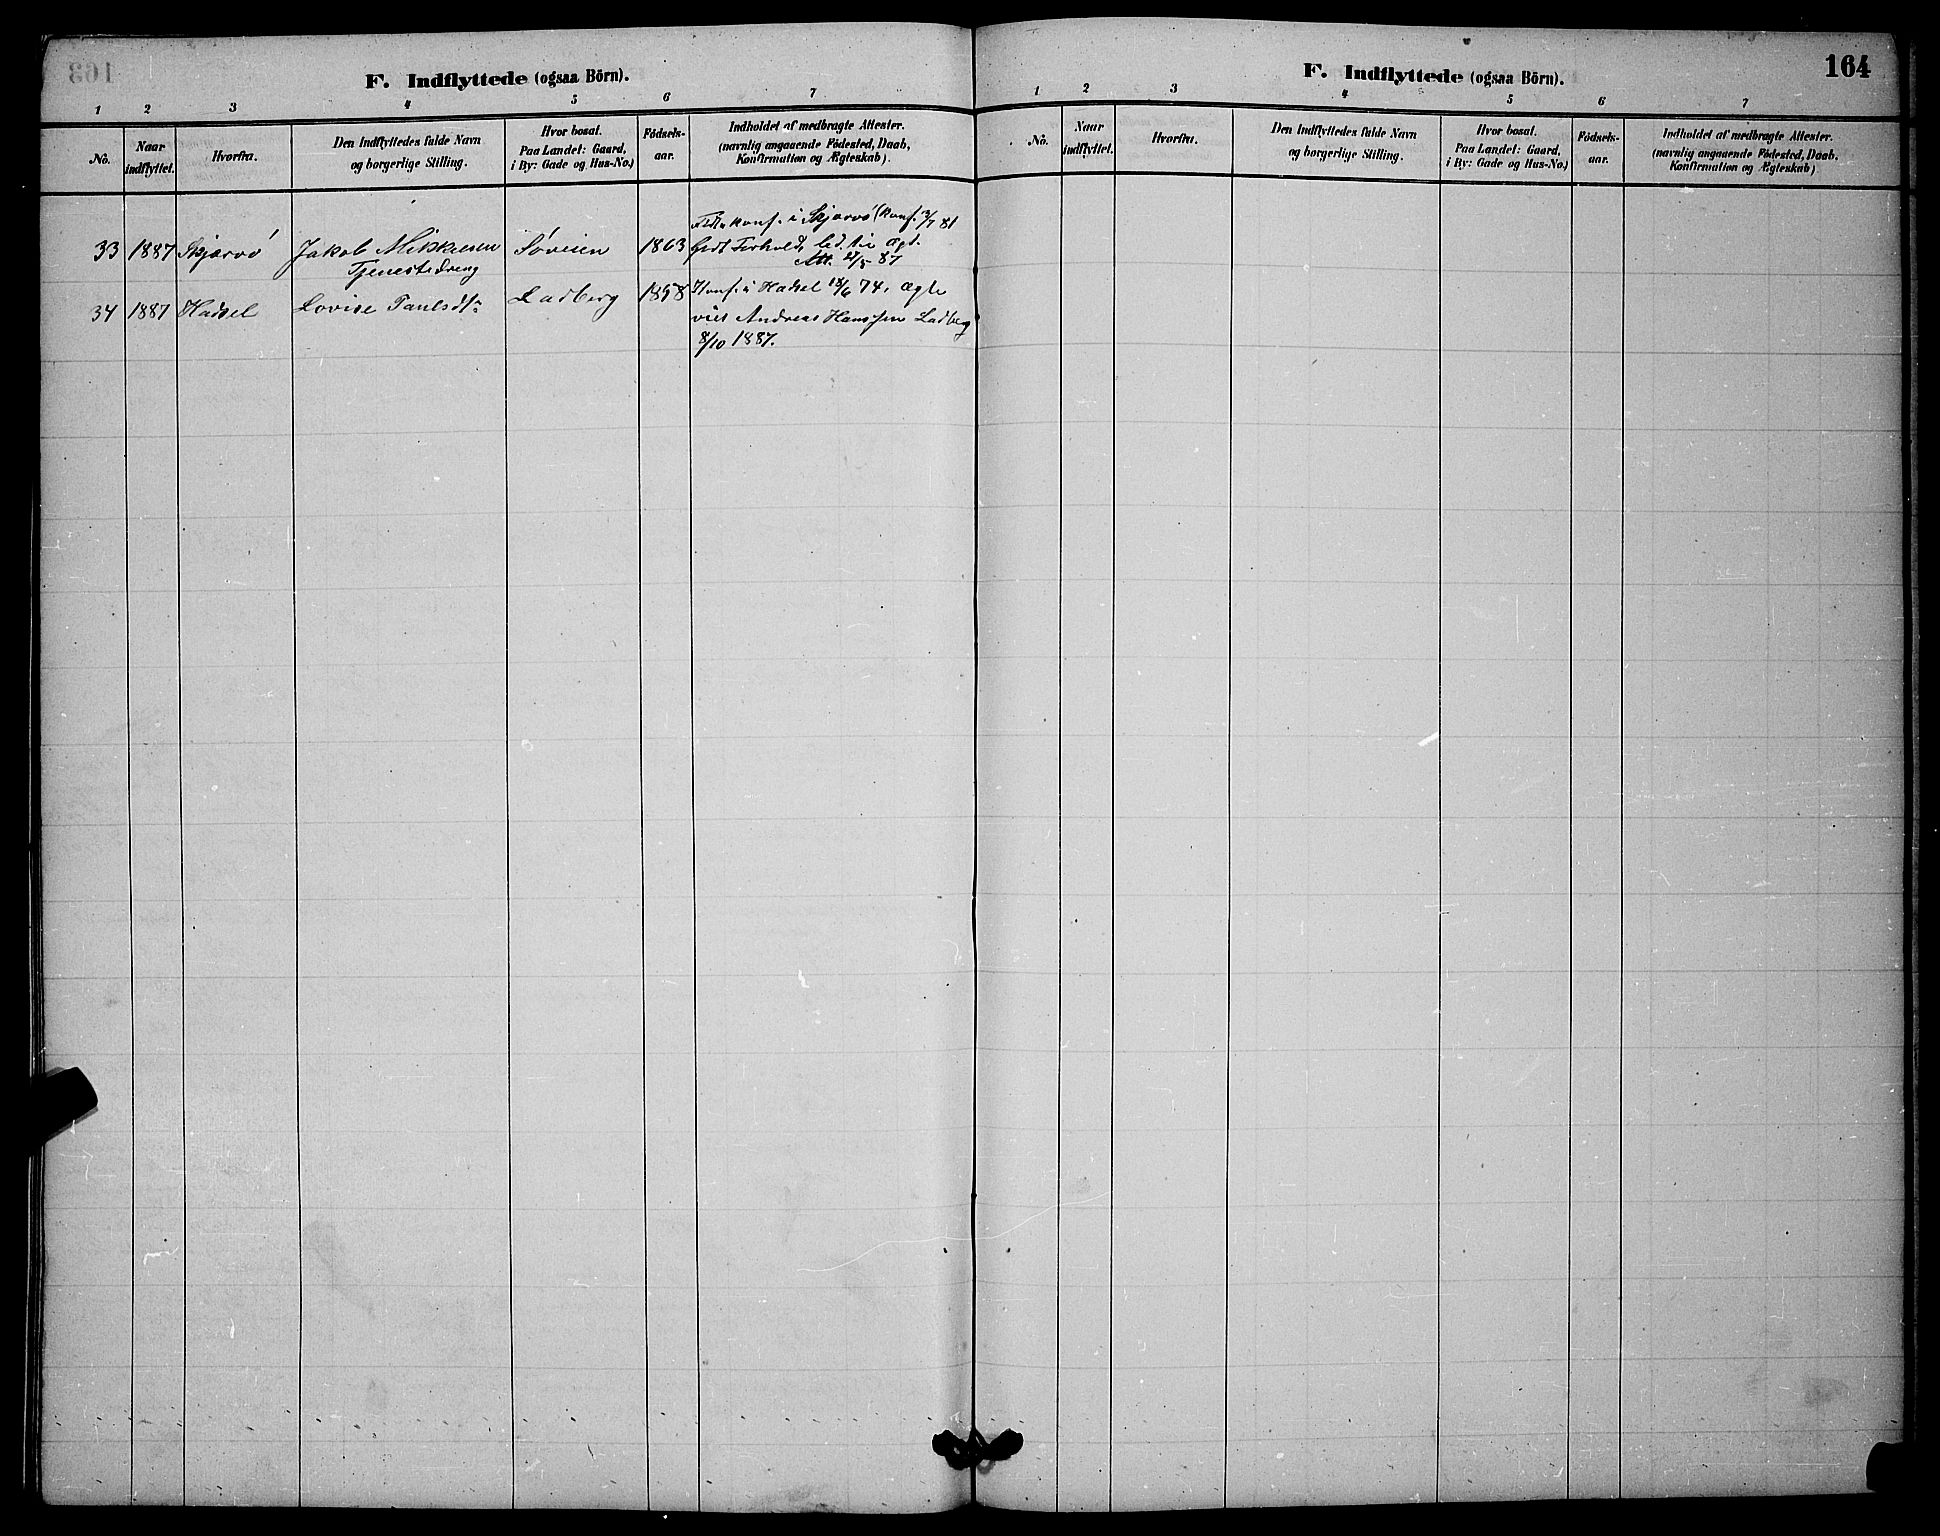 F. Indflyttede (ogsaa Börn).
1 2 3 4 5 6 7
No. Naar indflyttet. Hvorfra. Den Indflyttedes fulde Navn og borgerlige Stilling. Hvor bosat. Paa Landet: Gaard, i By: Gade og Hus-No.) Fødsels-aar. Indholdet af medbragte Attester. (navnlig angaaende Fødested, Daab, Konfirmation og Ægteskab).
33 1887 Skjervø Jakob Mikkelsen Søveien 1863 konf. i Skjervø (konf. 3/7 81
Tjenestedreng Godt Forhold, led. til Ægt.
Att. 5 87
34 1887 Hadsel Lovise Paulsdtr Ladberg 1858 Konf. i Hadsel 18/6 74, ægte
viet Andreas Hanssen Ladberg
8/10 1887.
F. Indflyttede (ogsaa Börn).
164
1 2 3 4 5 6 7
No. Naar indflyttet. Hvorfra. Den Indflyttedes fulde Navn og borgerlige Stilling. Hvor bosat. Paa Landet: Gaard, i By: Gade og Hus-No.) Fødsels-aar. Indholdet af medbragte Attester. (navnlig angaaende Fødested, Daab, Konfirmation og Ægteskab)